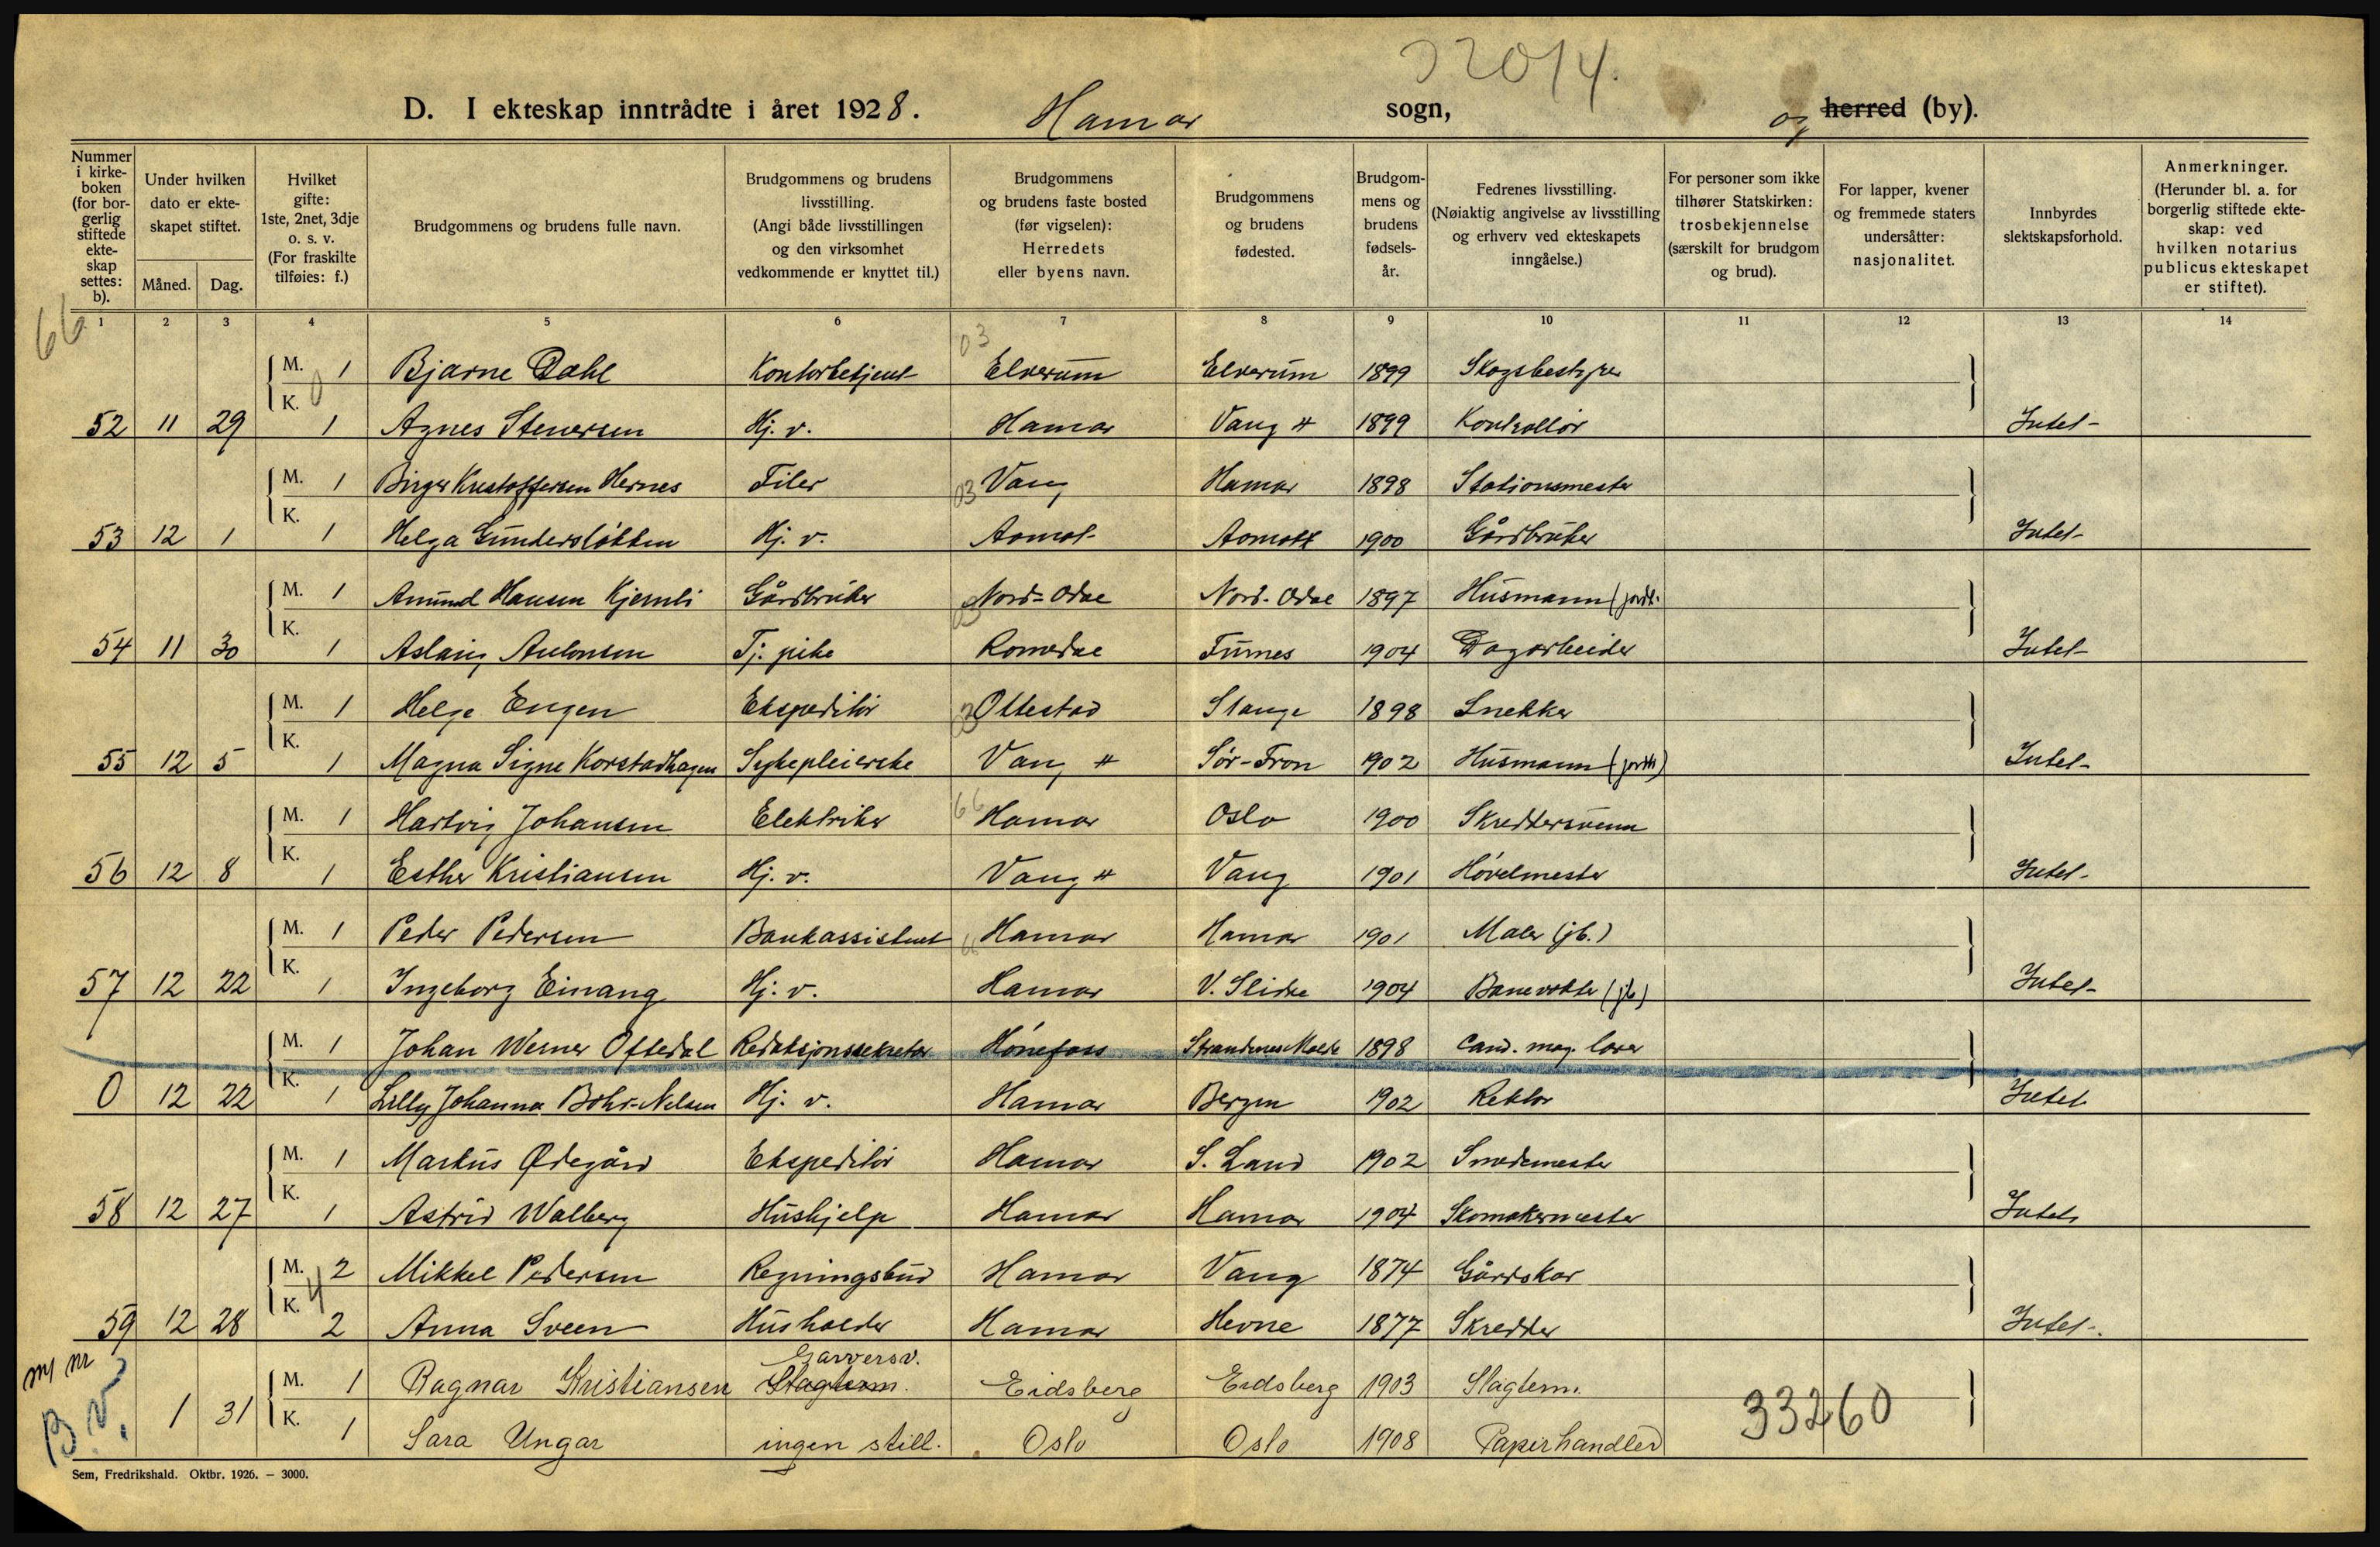 32014.
D. I ekteskap inntrådte i året 1928. Hamar sogn, og herred (by).
Nummer i kirke-boken (for bor-gerlig stiftede ekte-skap settes: b).
Under hvilken dato er ekte-skapet stiftet.
Måned. Dag.
Hvilket gifte: 1ste, 2net, 3dje o. s. v. (For fraskilte tilføies: f.)
Brudgommens og brudens fulle navn.
Brudgommens og brudens livsstilling. (Angi både livsstillingen og den virksomhet vedkommende er knyttet til.)
Brudgommens og brudens faste bosted (før vigselen): Herredets eller byens navn.
Brudgommens og brudens fødested.
Brudgom-mens og brudens fødsels-år.
Fedrenes livsstilling. (Nøiaktig angivelse av livsstilling og erhverv ved ekteskapets inngåelse.)
For personer som ikke tilhører Statskirken: trosbekjennelse (særskilt for brudgom og brud).
For lapper, kvener og fremmede staters undersåtter: nasjonalitet.
Innbyrdes slektskapsforhold.
Anmerkninger. (Herunder bl. a. for borgerlig stiftede ekte-skap: ved hvilken notarius publicus ekteskapet er stiftet).
66
1 2 3 4 5 6 7 8 9 10 11 12 13 14
M. 1 Bjarne Dahl Kontorbetjent 03 Elverum Elverum 1899 Skogsbestyrer
52 11 29 K. 0 1 Agnes Stenersen Hj. v. Hamar Vang H 1899 Kontrollør Intet
M. 1 Birger Kristoffersen Hernes Filer 03 Vang Hamar 1898 Stationsmester
53 12 1 K. 1 Helga Gundersløkken Hj. v. Aamot Aamot 1900 Gårdbruker Intet
M. 1 Amund Hansen Kjernli Gårdbruker 03 Nord-Odal Nord-Odal 1897 Husmann (jordb.
54 11 30 K. 1 Aslaug Antonsen Tj. pike Romedal Furnes 1904 Dagarbeider Intet
M. 1 Helge Engen Ekspeditør 03 Ottestad Stange 1898 Snekker
55 12 5 K. 1 Magna Signe Korstadhagen Sykepleierske Vang H Sør-Fron 1902 Husmann (jordb) Intet
M. 1 Hartvig Johansen Elektriker 66 Hamar Oslo 1900 Skreddersvenn
56 12 8 K. 1 Esther Kristiansen Hj. v. Vang H Vang 1901 Høvelmester Intet
M. 1 Peder Pedersen Bankassistent 66 Hamar Hamar 1901 Maler (jb.)
57 12 22 K. 1 Ingeborg Einang Hj. v. Hamar V. Slidre 1904 Banevokter (jb) Intet
M. 1 Johan Werner Oftedal Redaksjonssekretær Hønefoss Molde 1898 Cand. mag. lærer
0 12 22 K. 1 Lilly Johanna Bohr-Nelsen Hj. v. Hamar Bergen 1902 Rektor Intet
M. 1 Markus Ødegård Ekspeditør Hamar S. Land 1902 Smedmester
58 12 27 K. 1 Astrid Walberg Hushjelp Hamar Hamar 1904 Skomakermester Intet
M. 2 Mikkel Pedersen Regningsbud Hamar Vang 1874 Gårdskar
59 12 28 K. 4 2 Anna Sveen Husholder Hamar Hevne 1877 Skredder Intet
m/ nr
Garversv.
M. 1 Ragnar Kristiansen Slagterm. Eidsberg Eidsberg 1903 Slagterm.
B v. 1 31 K. 1 Sara Ungar ingen still. Oslo Oslo 1908 Papirhandler 33260
Sem, Fredrikshald. Oktbr. 1926. – 3000.